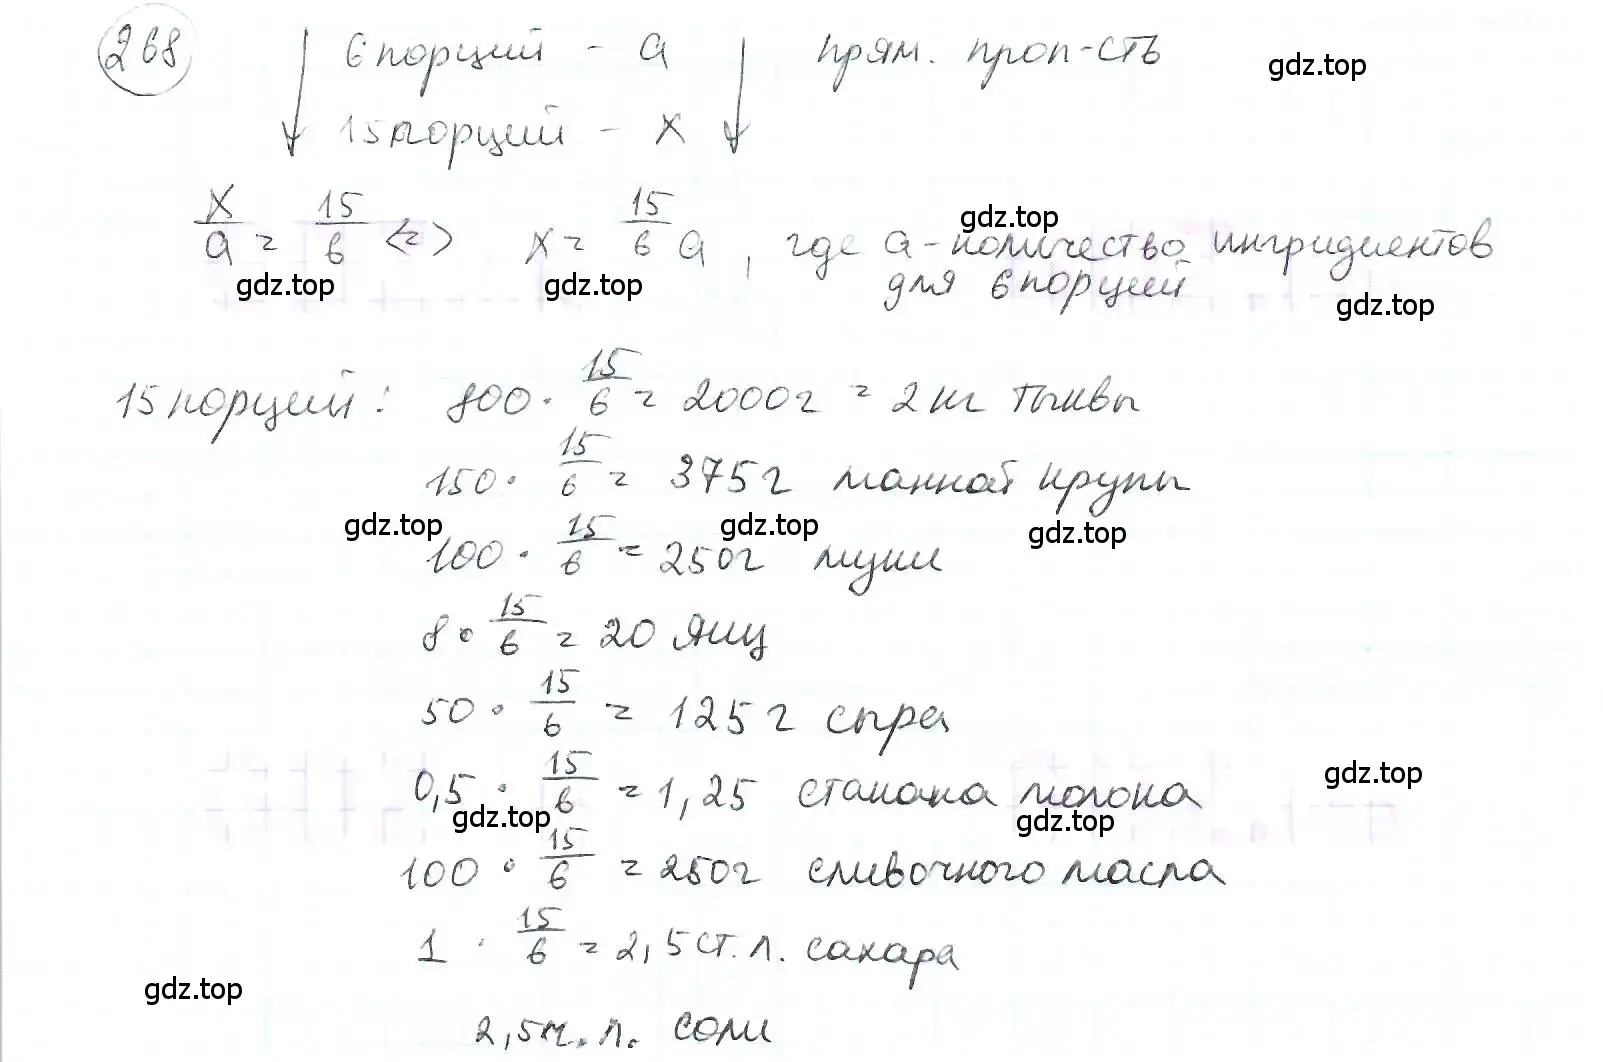 268 6 порций - a прям. проп-сть
gdz.top
15 порций - x
x/a = 15/6 <=> x = 15/6 a, где a - количество ингридиентов
gdz.top
для 6 порций
gdz.top gdz.top gdz.top
15 порций: 800 · 15/6 = 2000г = 2 кг тыквы
150 · 15/6 = 375 г манной крупы
gdz.top gdz.top gdz.top
100 · 15/6 = 250г муки
8 · 15/6 = 20 яиц
50 · 15/6 = 125 г сыра
gdz.top
0,5 · 15/6 = 1,25 стакана молока
gdz.top gdz.top
100 · 15/6 = 250г сливочного масла
1 · 15/6 = 2,5 ст. л. сахара
gdz.top
2,5 ч. л. соли